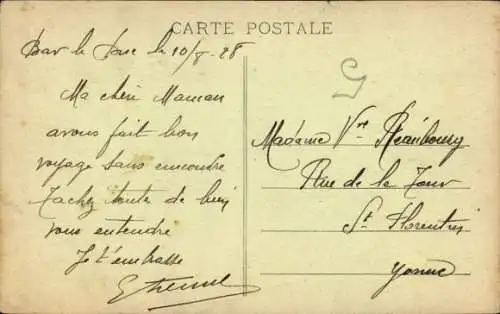 CARTE POSTALE
Bar le Duc le 10/8-28
Ma chère Maman
avons fait bon
voyage sans encombre
Tachez toute de bien
vous entendre
Je t'embrasse
Etienne
Madame Vve
Rue de la Tour
St Florentin
Yonne